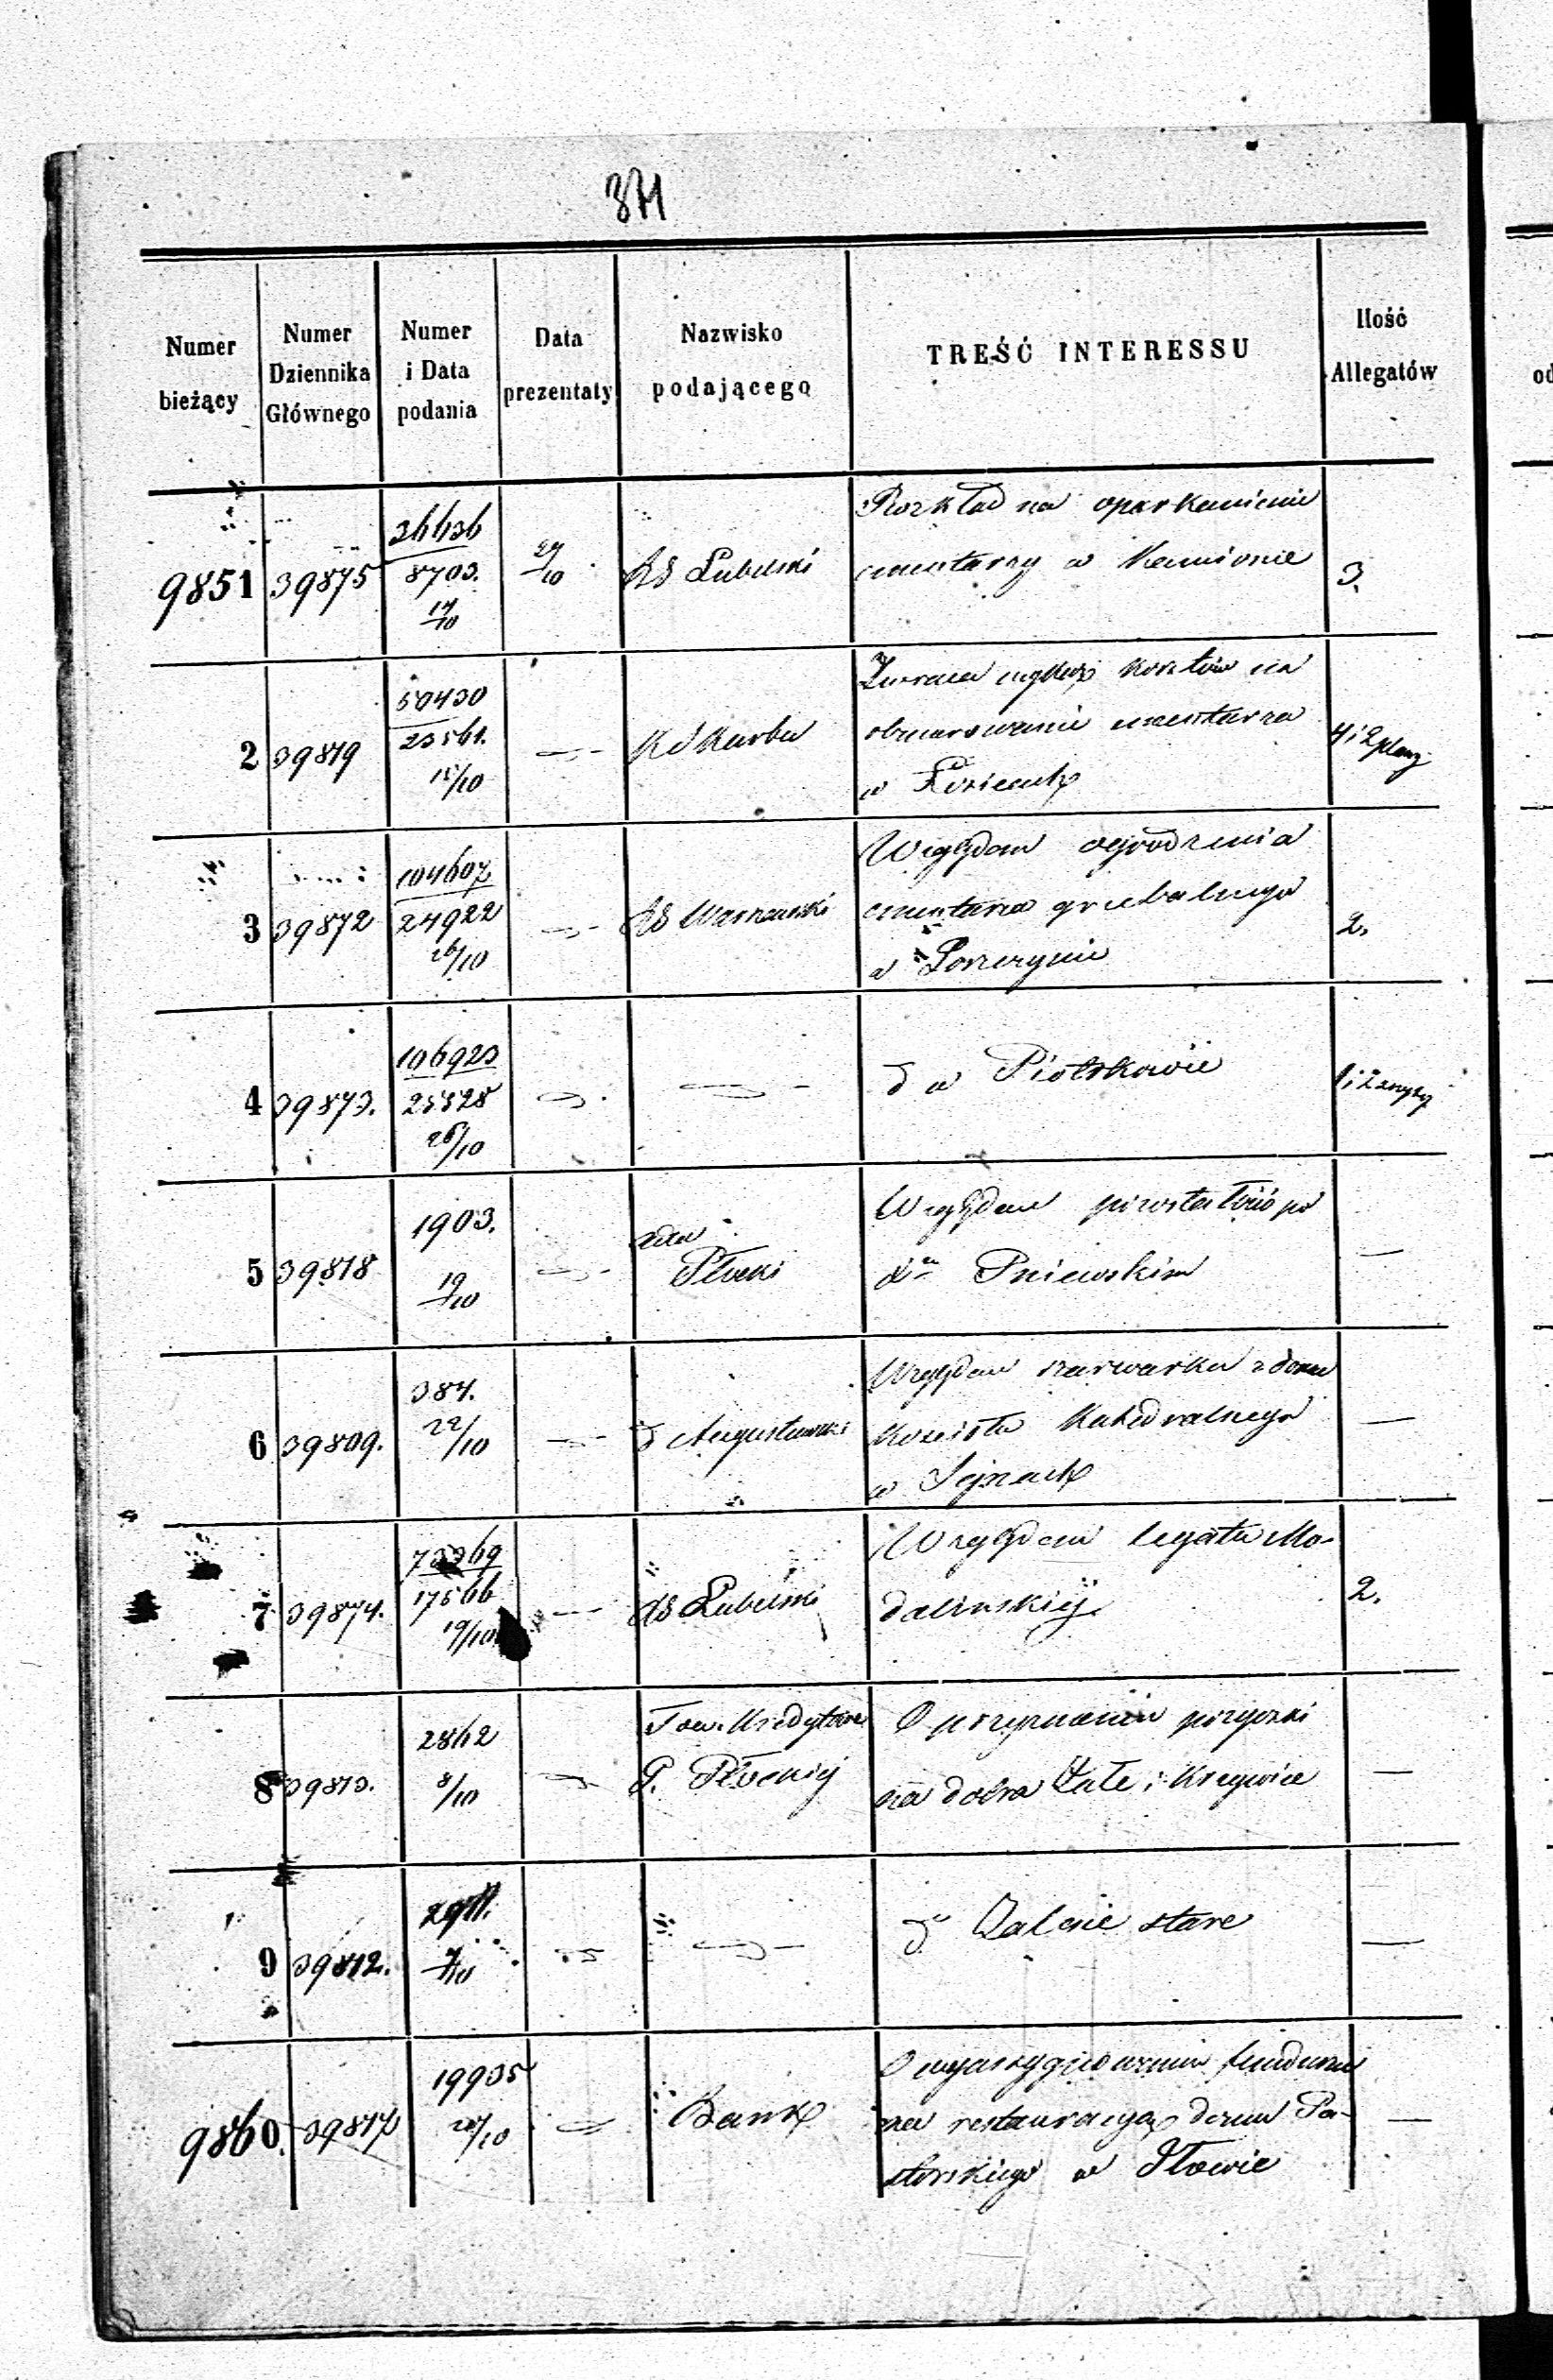 371
Numer bieżący
Numer Dziennika Głównego
Numer i Data podania
Data prezentaty
Nazwisko podającego
TREŚĆ INTERESSU
Ilość Allegatów
9851 39875 36636 8703. 17/10 27/10 RG Lubelski
Rozkład na oparkanienie
cmentarzy w Kamionie
3.
2 39819 50430 23561. 15/10 K Skarbu
Zwraca kosztów na
obmurowanie cmentarza
w
4 i 2 plany
3 39872 104607 24922 26/10 RG Warszawski
Względem ogrodzenia
cmentarza grzebalnego
w
2.
4 39873. 106923 25528 26/10
d w Piotrkowie
1 i 2
5 39818 1903. 19/10
Płocki
Względem pozostałości po
Pniewskim
—
6 39809. 384. 22/10 d Augustowski
Względem szarwarku z domu
Kościoła Katedralnego
w Sejnach
—
7 39874. 17566 19/10 RG Lubelski
Względem legatu Mo-
dalinskiej.
2.
8 39813. 2862 8/10 Tow. Kredytowe
G. Płockiej
O przyznaniu pożyczki
na dobra i Krzywice
—
9 39812. 7/10
do Zalesie stare
—
9860. 39817 19935 20/10 Bank
O wyassygnowaniu funduszu
na restauracyą domu Pa-
storskiego w Iłowie
—